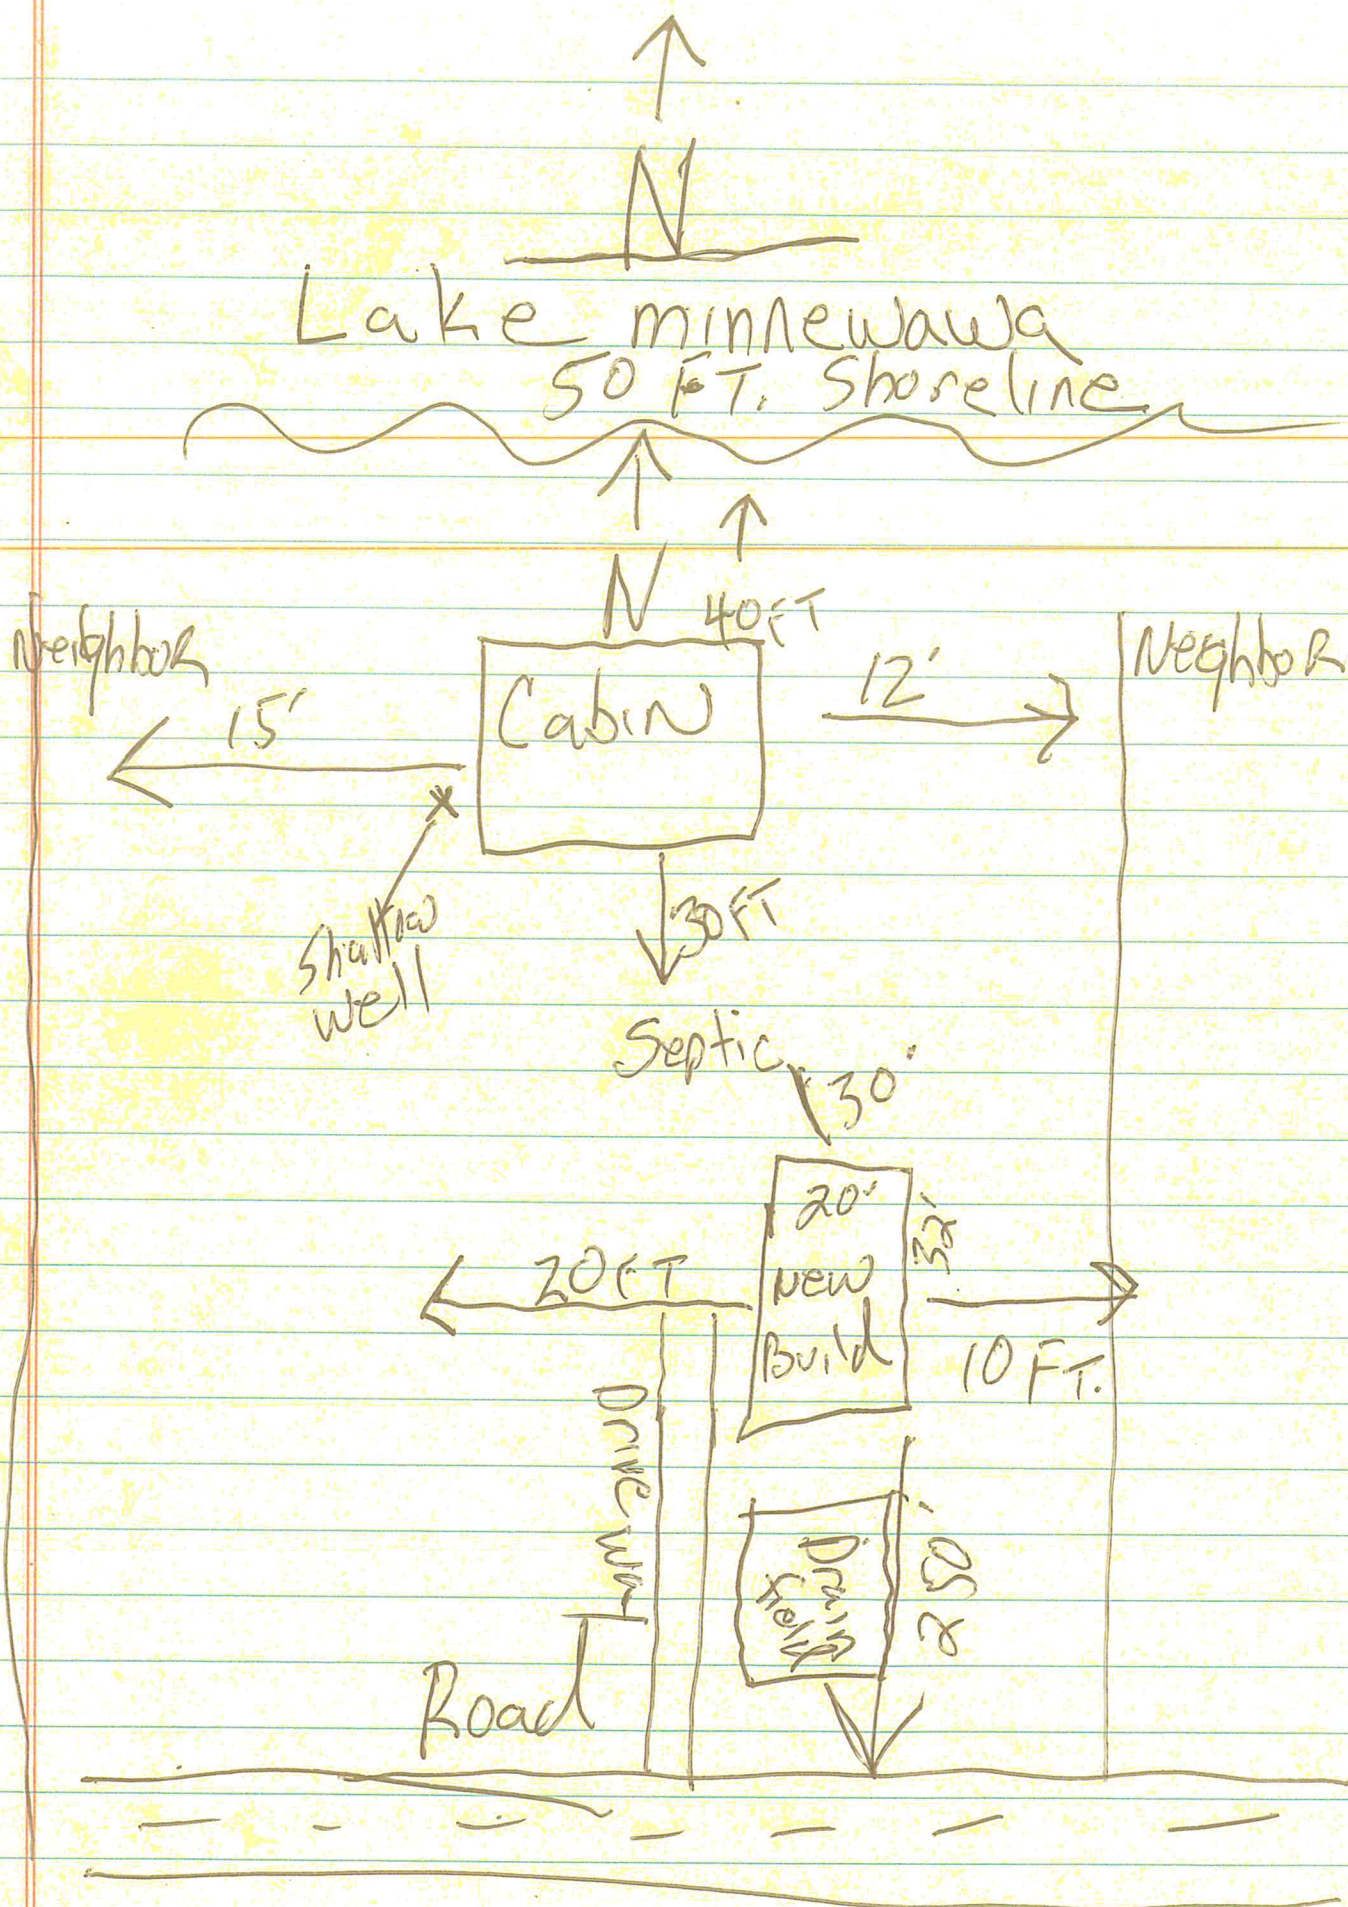 N
Lake minnewawa
50 FT. Shoreline
N 40FT
Neighbor
Neighbor
15'
Cabin
12'
Shallow
well
30FT
Septic
30'
20'
32'
20FT
New
Build
10 FT.
Driveway
Drain
field
250'
Road